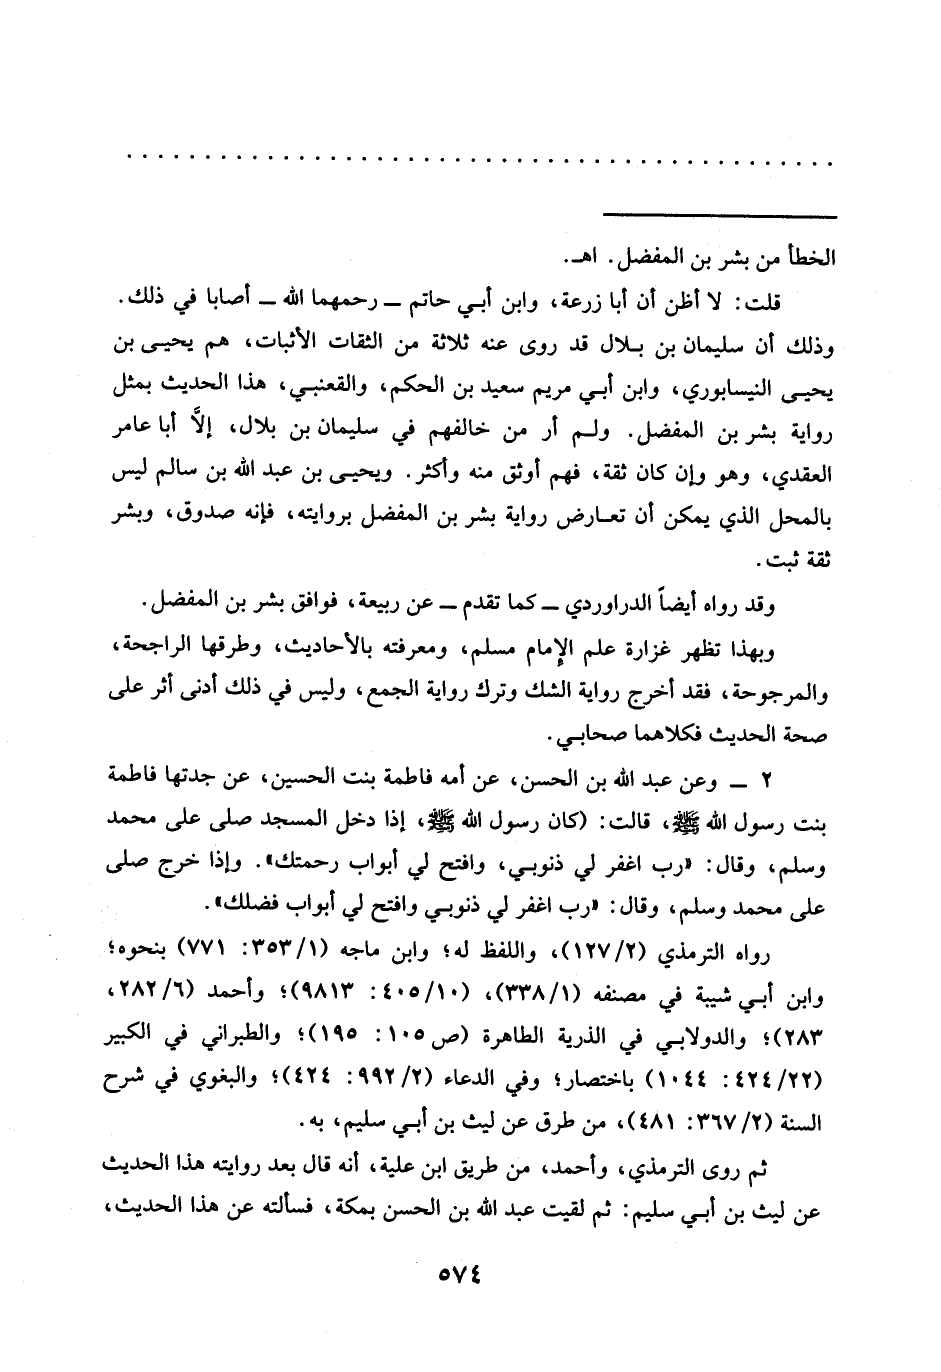 الخطأ من بشر بن المفضل. اهـ.
قلت: لا أظن أن أبا زرعة، وابن أبي حاتم ـ رحمهما الله ـ أصابا في ذلك.
وذلك أن سليمان بن بلال قد روى عنه ثلاثة من الثقات الأثبات، هم يحيى بن
يحيى النيسابوري، وابن أبي مريم سعيد بن الحكم، والقعنبي، هذا الحديث بمثل
رواية بشر بن المفضل. ولم أر من خالفهم في سليمان بن بلال، إلَّا أبا عامر
العقدي، وهو وإن كان ثقة، فهم أوثق منه وأكثر. ويحيى بن عبد الله بن سالم ليس
بالمحل الذي يمكن أن تعارض رواية بشر بن المفضل بروايته، فإنه صدوق، وبشر
ثقة ثبت.
وقد رواه أيضاً الدراوردي ـ كما تقدم ـ عن ربيعة، فوافق بشر بن المفضل.
وبهذا تظهر غزارة علم الإمام مسلم، ومعرفته بالأحاديث، وطرقها الراجحة،
والمرجوحة، فقد أخرج رواية الشك وترك رواية الجمع، وليس في ذلك أدنى أثر على
صحة الحديث فكلاهما صحابي.
٢ ـ وعن عبد الله بن الحسن، عن أمه فاطمة بنت الحسين، عن جدتها فاطمة
بنت رسول الله ﷺ، قالت: (كان رسول الله ﷺ، إذا دخل المسجد صلى على محمد
وسلم، وقال: «رب اغفر لي ذنوبي، وافتح لي أبواب رحمتك». وإذا خرج صلى
على محمد وسلم، وقال: «رب اغفر لي ذنوبي وافتح لي أبواب فضلك».
رواه الترمذي (١٢٧/٢)، واللفظ له؛ وابن ماجه (٣٥٣/١: ٧٧١) بنحوه؛
وابن أبي شيبة في مصنفه (٣٣٨/١)، (٤٠٥/١٠: ٩٨١٣)؛ وأحمد (٢٨٢/٦،
٢٨٣)؛ والدولابي في الذرية الطاهرة (ص ١٠٥: ١٩٥)؛ والطبراني في الكبير
(٤٢٤/٢٢: ١٠٤٤) باختصار؛ وفي الدعاء (٩٩٢/٢: ٤٢٤)؛ والبغوي في شرح
السنة (٣٦٧/٢: ٤٨١)، من طرق عن ليث بن أبي سليم، به.
ثم روى الترمذي، وأحمد، من طريق ابن علية، أنه قال بعد روايته هذا الحديث
عن ليث بن أبي سليم: ثم لقيت عبد الله بن الحسن بمكة، فسألته عن هذا الحديث،
٥٧٤